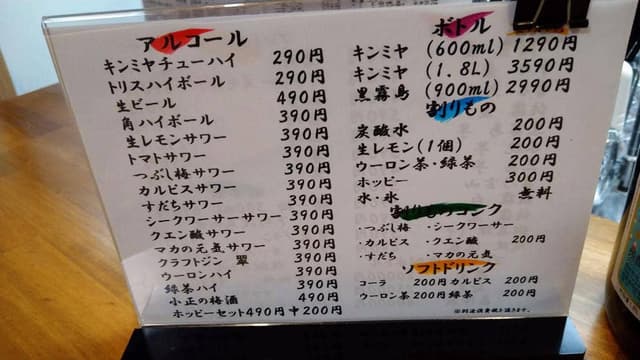 アルコール
キンミヤチューハイ 290円
トリスハイボール 290円
生ビール 490円
角ハイボール 390円
生レモンサワー 390円
トマトサワー 390円
つぶし梅サワー 390円
カルピスサワー 390円
すだちサワー 390円
シークワーサーサワー 390円
クエン酸サワー 390円
マカの元気サワー 390円
クラフトジン 翠 390円
ウーロンハイ 390円
緑茶ハイ 390円
小正の梅酒 490円
ホッピーセット490円 中200円
ボトル
キンミヤ (600ml) 1290円
キンミヤ (1.8L) 3590円
黒霧島 (900ml) 2990円
割りもの
炭酸水 200円
生レモン(1個) 200円
ウーロン茶・緑茶 200円
ホッピー 300円
水・氷 無料
割りものコンク
・つぶし梅 ・シークワーサー
・カルピス ・クエン酸 200円
・すだち ・マカの元気
ソフトドリンク
コーラ 200円 カルピス 200円
ウーロン茶 200円 緑茶 200円
※別途消費税を頂きます。